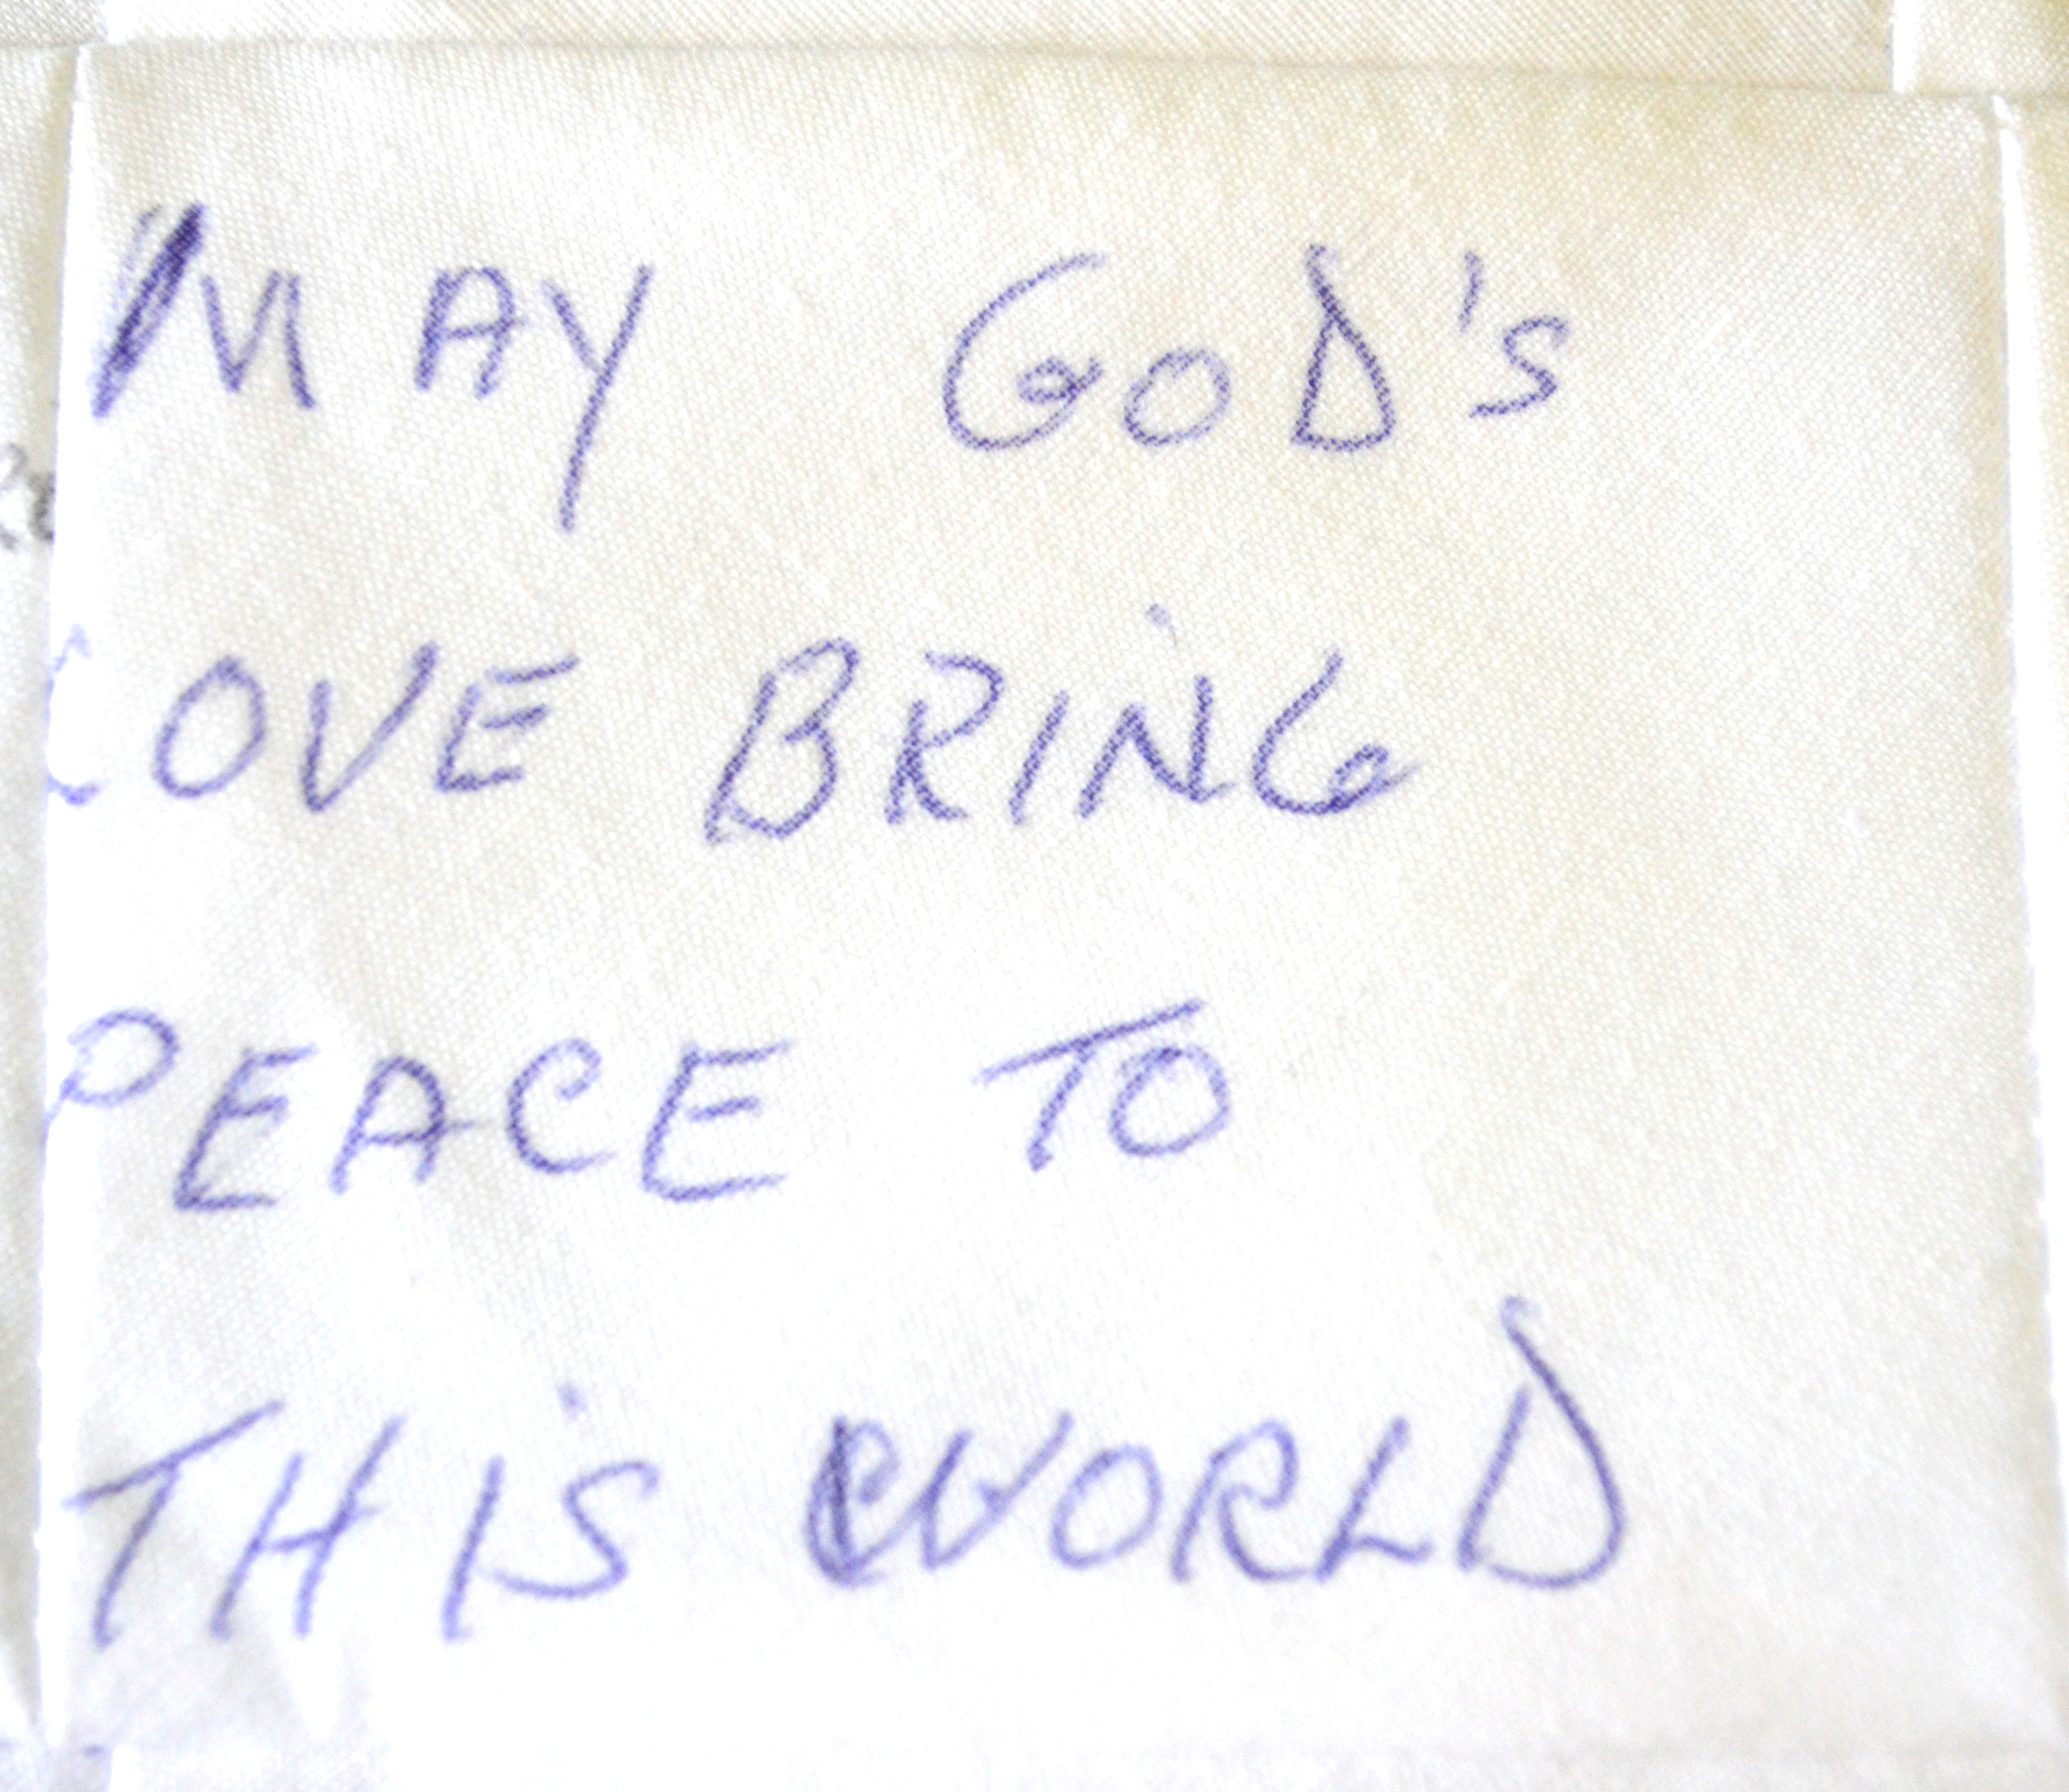 MAY GOD's
LOVE BRING
PEACE TO
THIS WORLD